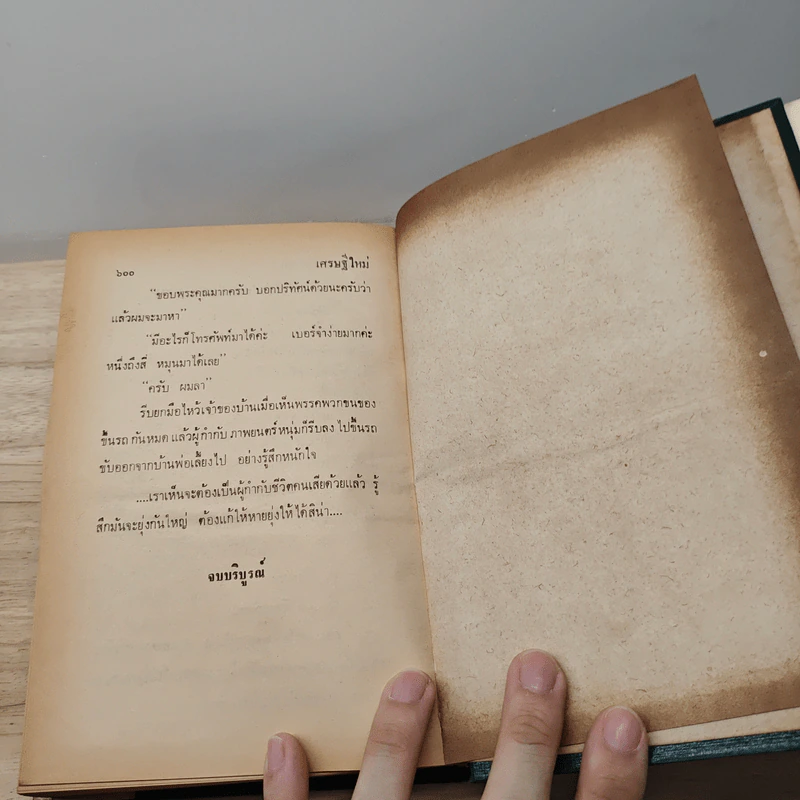 ๖๐๐ เศรษฐีใหม่
"ขอบพระคุณมากครับ บอกปริทัศน์ด้วยนะครับว่า
แล้วผมจะมาหา"
"มีอะไรก็โทรศัพท์มาได้ค่ะ เบอร์จำง่ายมากค่ะ
หนึ่งถึงสี่ หมุนมาได้เลย"
"ครับ ผมลา"
รีบยกมือไหว้เจ้าของบ้านเมื่อเห็นพรรคพวกขนของ
ขึ้นรถ กันหมด แล้วผู้กำกับ ภาพยนตร์หนุ่มก็รีบลง ไปขึ้นรถ
ขับออกจากบ้านพ่อเลี้ยงไป อย่างรู้สึกหนักใจ
....เราเห็นจะต้องเป็นผู้กำกับชีวิตคนเสียด้วยแล้ว รู้
สึกมันจะยุ่งกันใหญ่ ต้องแก้ให้หายยุ่งให้ได้สิน่า....
จบบริบูรณ์